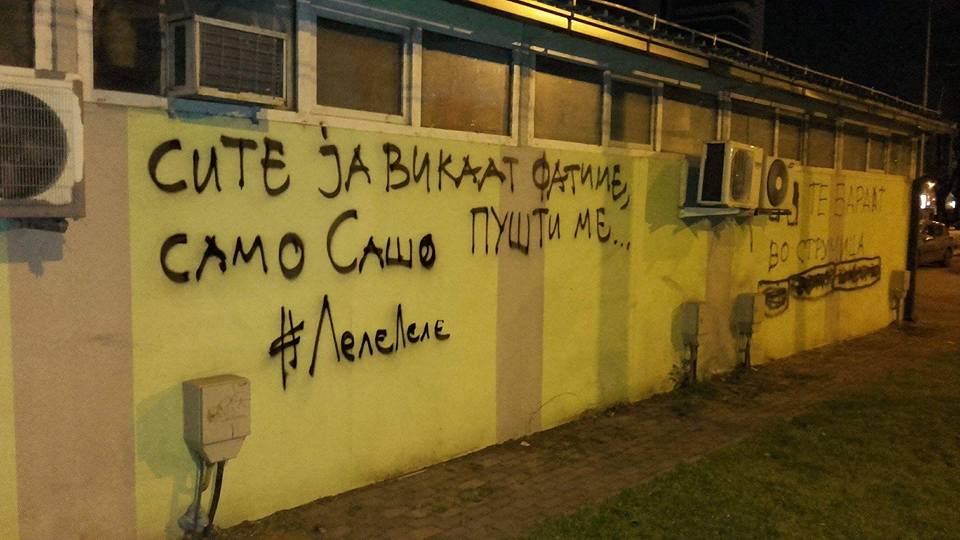 СИТЕ ЈА ВИКААТ ФАТИМЕ,
САМО САШО ПУШТИ МЕ...
#ЛелеЛеле
ТЕ БАРААТ
ВО СТРУМИЦА